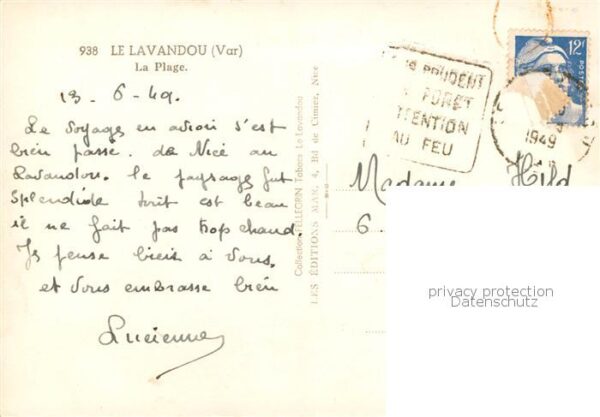 938 LE LAVANDOU (Var)
La Plage.
13-6-49.
Le voyage en avion s'est
bien passé. de Nice au
Lavandou. le paysage fut
splendide tout est beau
il ne fait pas trop chaud.
Je pense bien à vous.
et vous embrasse bien
Lucienne
Collection PELLEGRIN Tabacs Le Lavandou
LES ÉDITIONS MAR, 4, Bd de Cimiez, Nice
PRUDENT
FORET
TTENTION
AU FEU
12F
POSTES
1949
Madame Hild
6
privacy protection
Datenschutz